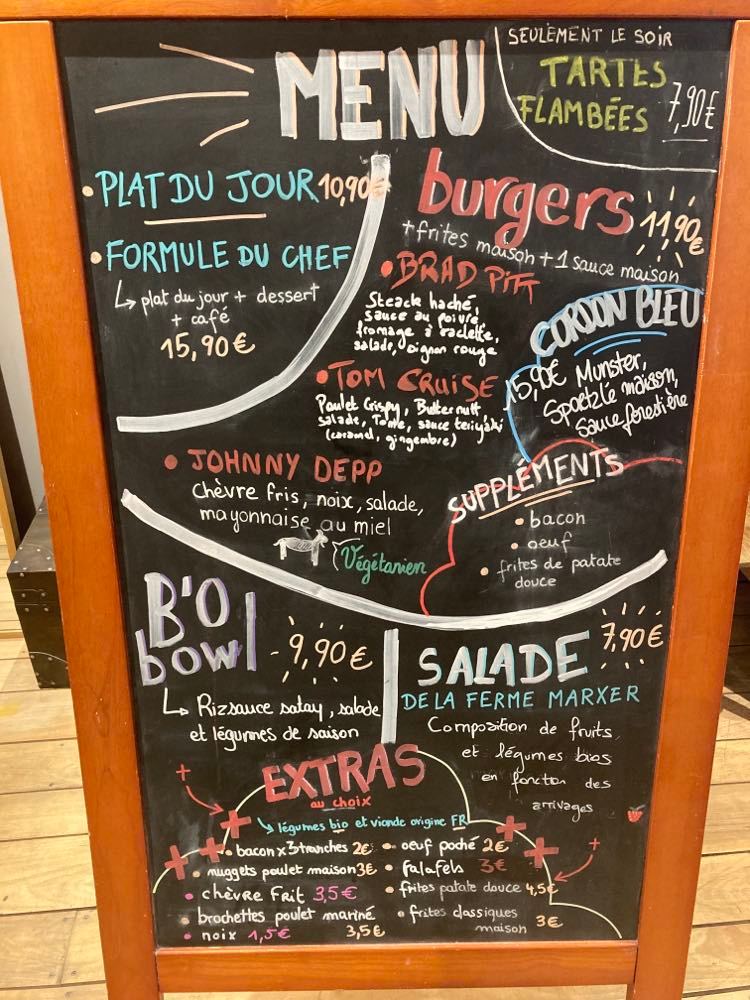 MENU
SEULEMENT LE SOIR
TARTES
FLAMBÉES 7,90€
• PLAT DU JOUR 10,90€
• FORMULE DU CHEF
plat du jour + dessert
+ café
15,90€
burgers 11,90€
+ frites maison + 1 sauce maison
• BRAD PITT
Steack haché,
sauce au poivre
fromage à raclette,
salade, oignon rouge
• TOM CRUISE
Poulet Crispy, Butternutt
salade, Tome, sauce teriyaki
(caramel, gingembre)
CORDON BLEU
15,90€ Munster,
Spaetzle maison,
sauce forestière
• JOHNNY DEPP
Chèvre fris, noix, salade,
mayonnaise au miel
Végétarien
SUPPLÉMENTS
• bacon
• oeuf
• frites de patate
douce
B'O
bowl - 9,90€
Riz sauce satay, salade
et légumes de saison
SALADE 7,90€
DE LA FERME MARXER
Composition de fruits
et légumes bios
en fonction des
arrivages
EXTRAS
au choix
légumes bio et viande origine FR
• bacon x 3 tranches 2€
• nuggets poulet maison 3€
• chèvre Frit 3,5€
• brochettes poulet mariné
3,5€
• noix 1,5€
• oeuf poché 2€
• falafels 3€
• frites patate douce 4,5€
• frites classiques
maison 3€